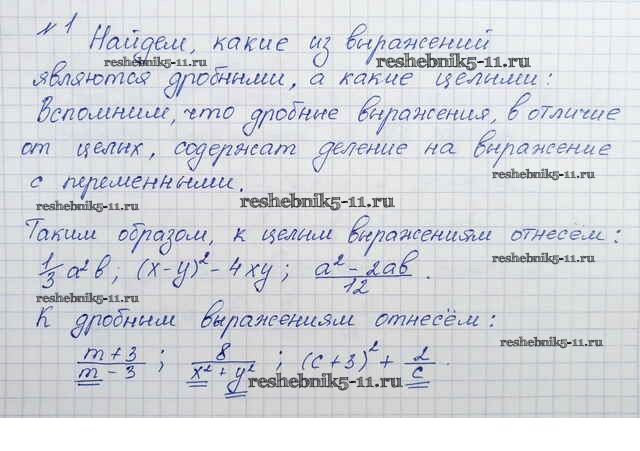 №1
Найдем, какие из выражений
reshebnik5-11.ru reshebnik5-11.ru
являются дробными, а какие целыми:
Вспомним, что дробные выражения, в отличие
от целых, содержат деление на выражение
reshebnik5-11.ru
с переменными.
reshebnik5-11.ru reshebnik5-11.ru
Таким образом, к целым выражениям отнесём:
1/3 a²b; (x-y)² - 4xy; (a² - 2ab)/12.
reshebnik5-11.ru
reshebnik5-11.ru
К дробным выражениям отнесём:
reshebnik5-11.ru
(m+3)/(m-3); 8/(x²+y²); (c+3)² + 2/c.
reshebnik5-11.ru